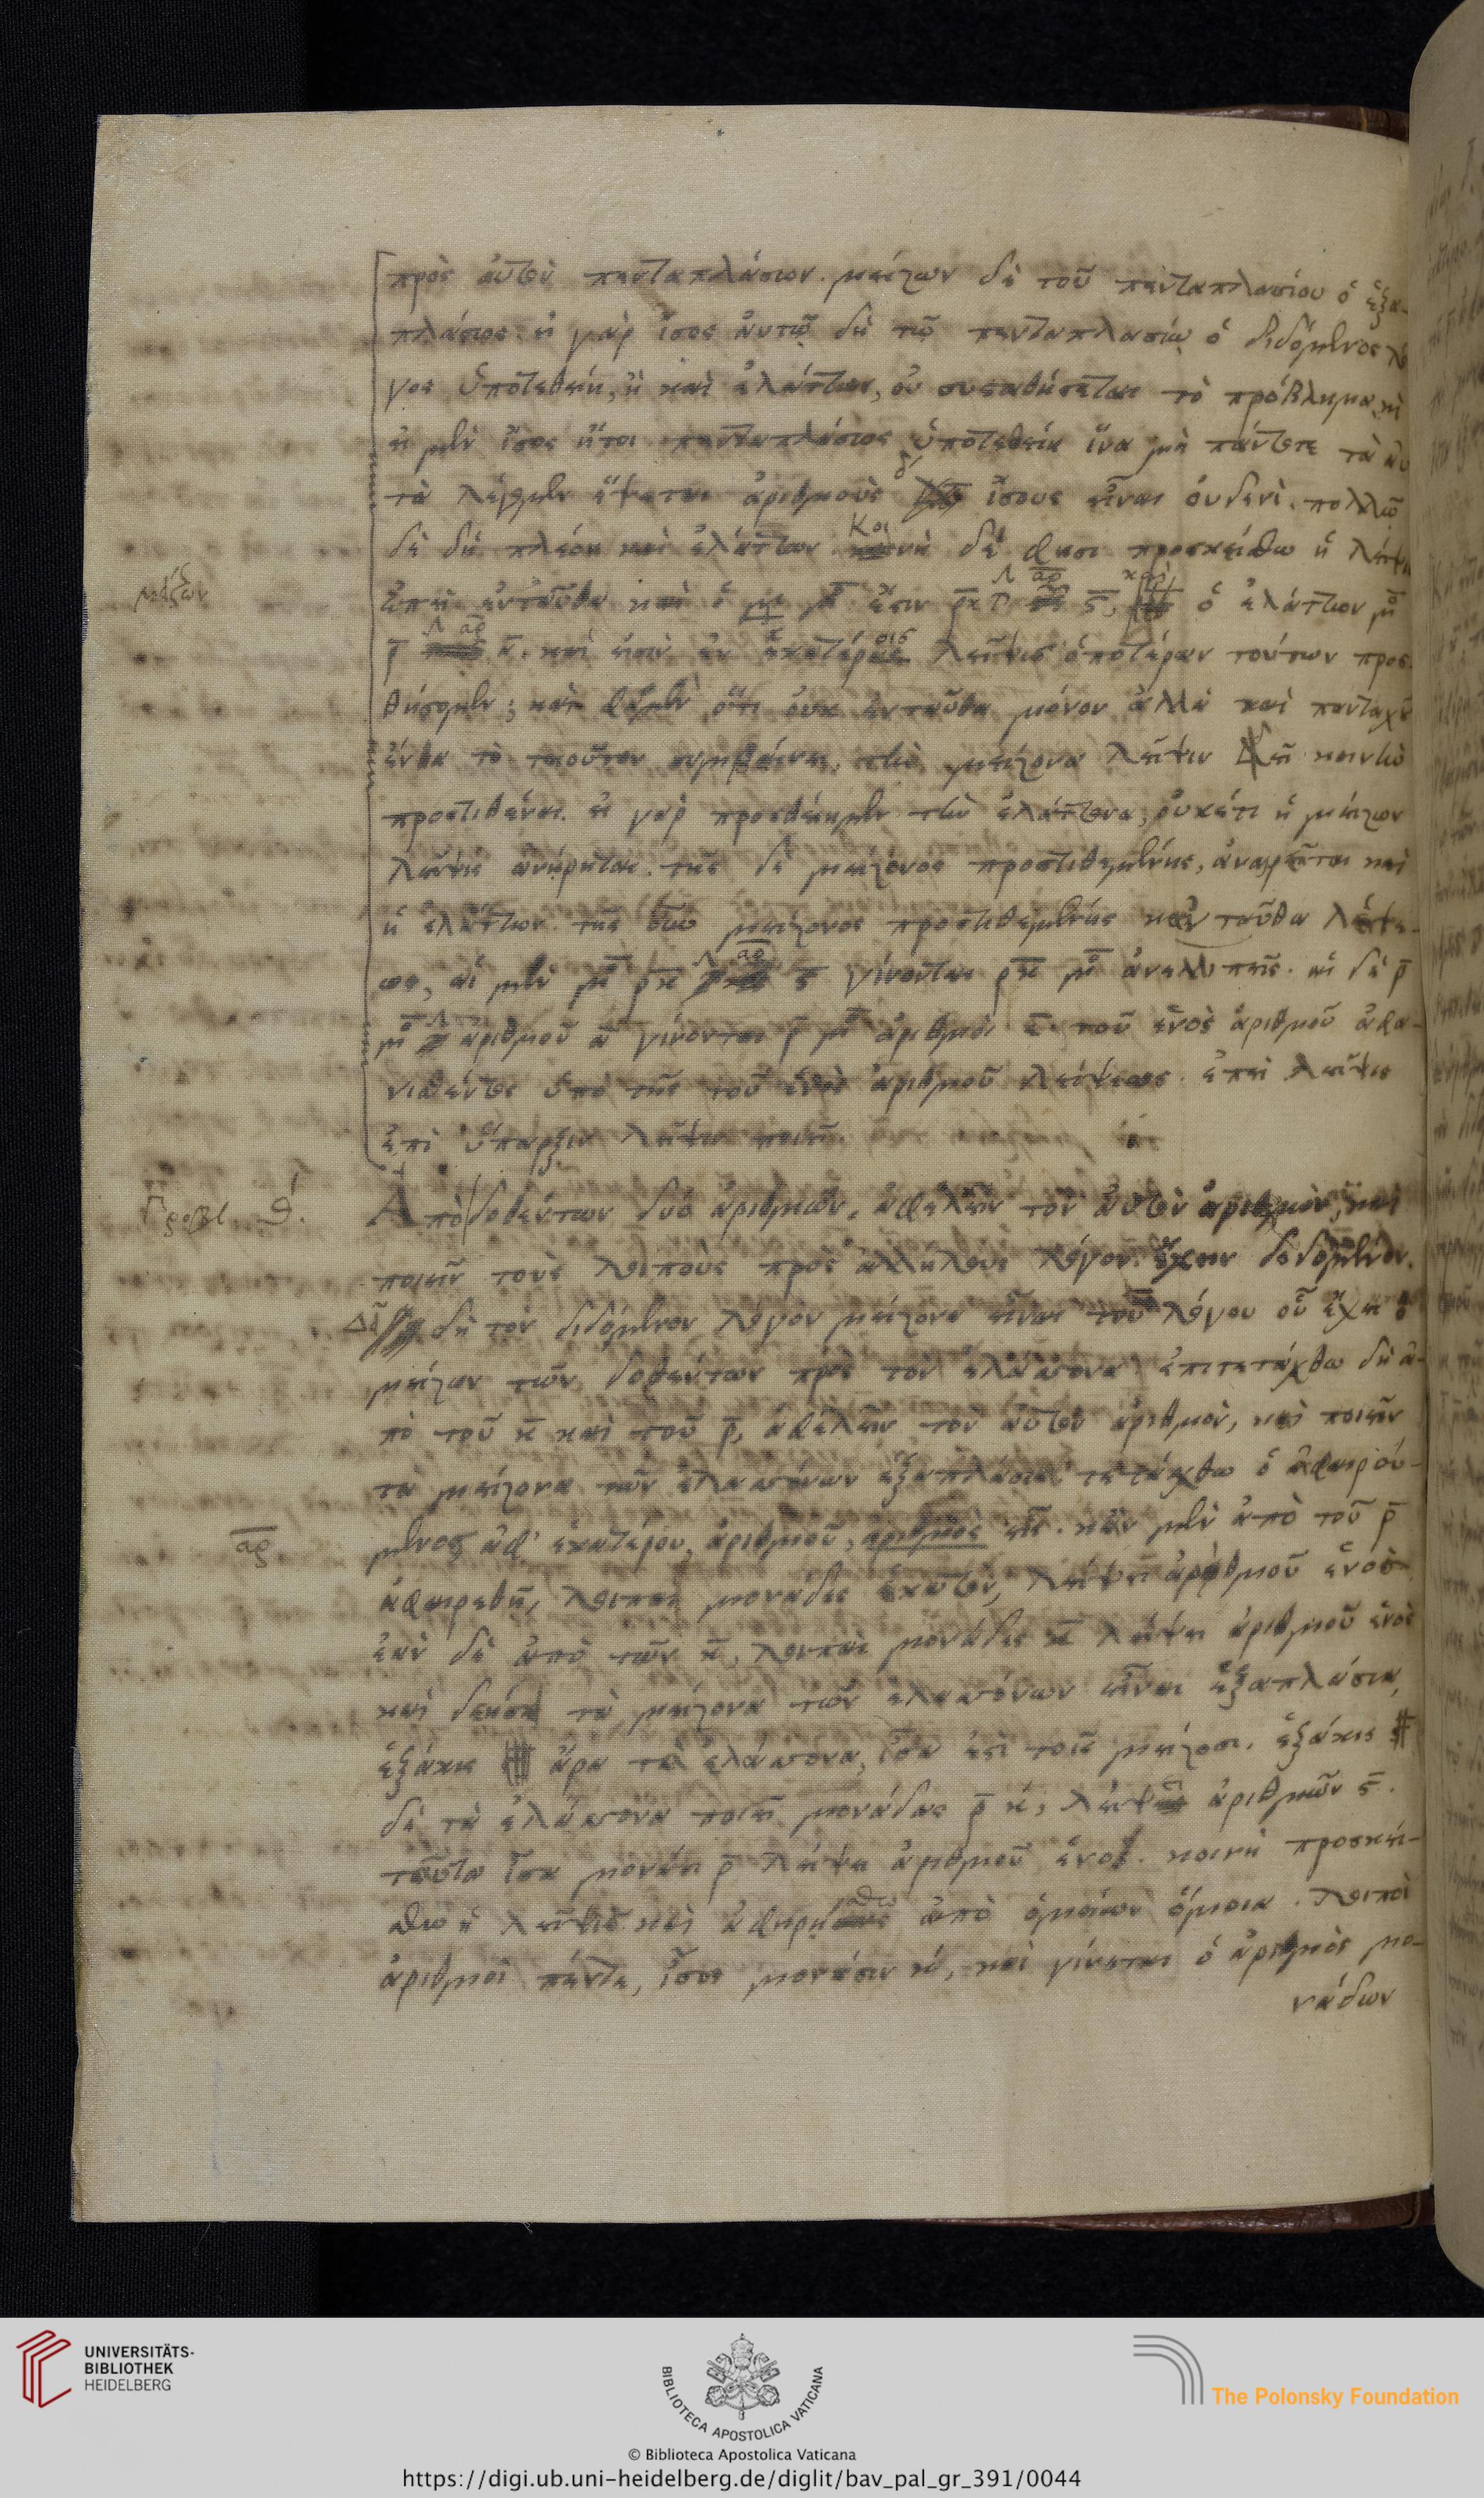 πρὸς αὐτὸν πενταπλάσιον. μείζων δὲ τοῦ πενταπλασίου ὁ ἑξα-
πλάσιος. εἰ γὰρ ἴσος αὐτῷ δὴ τῷ πενταπλασίῳ ὁ διδόμενος λό
γος ὑποτεθείη, ἢ καὶ ἐλάττων, οὐ συσταθήσεται τὸ πρόβλημα
εἰ μὲν ἴσος ἤτοι πενταπλάσιος ὑποτεθείη ἵνα μὴ πάντοτε τὰ αὐ
τὰ λέγωμεν ἕψεται ἀριθμοὺς ἴσους εἶναι οὐδενί. πολλῷ
δὲ δὴ πλέον καὶ ἐλάττων. Κοινὴ δέ φησι προσκείσθω ἡ λεῖψις
μείζων
ἐπεὶ ἐνταῦθα καὶ ὁ μ̅ ἐστιν ρ̅κ̅ Λ α̅ρ̅ ς̅, ὁ ἐλάττων μο
ρ̅ Λ α̅ρ̅ α̅. καὶ εἰσὶν ἐν ἑκατέροις λεῖψις ὁποτέραν τούτων προσ
θήσομεν; καὶ φαμὲν ὅτι οὐκ ἐνταῦθα μόνον ἀλλὰ καὶ πανταχοῦ
ἔνθα τὸ τοιοῦτον συμβαίνει, τὴν μείζονα λεῖψιν δεῖ κοινὴν
προστιθέναι. εἰ γὰρ προσθείημεν τὴν ἐλάττονα, οὐκέτι ἡ μείζων
λεῖψις ἀνῄρηται. τῆς δὲ μείζονος προστιθεμένης, ἀναιρεῖται καὶ
ἡ ἐλάττων. τῆς οὖν μείζονος προστιθεμένης κἀνταῦθα λείψε-
ως, αἱ μὲν μο ρ̅κ̅ Λ α̅ρ̅ ς̅ γίνονται ρ̅κ̅ μο ἀνελλιπεῖς. αἱ δὲ ρ̅
μο Λ ἀριθμοῦ α̅ γίνονται ρ̅ μο ἀριθμοὶ ε̅. τοῦ ἑνὸς ἀριθμοῦ ἀφα-
νισθέντος ὑπὸ τῆς τοῦ ἑνὸς ἀριθμοῦ λείψεως. ἐπεὶ λεῖψις
ἐπὶ ὕπαρξιν λεῖψιν ποιεῖ.
Προβλ θ΄.
Ἀπὸ δοθέντων δύο ἀριθμῶν, ἀφελεῖν τὸν αὐτὸν ἀριθμὸν, καὶ
ποιεῖν τοὺς λοιποὺς πρὸς ἀλλήλους λόγον ἔχειν δεδομένον.
Δεῖ δὴ τὸν διδόμενον λόγον μείζονα εἶναι τοῦ λόγου οὗ ἔχει ὁ
μείζων τῶν δοθέντων πρὸς τὸν ἐλάσσονα. ἐπιτετάχθω δὴ ἀ-
πὸ τοῦ κ̅ καὶ τοῦ ρ̅, ἀφελεῖν τὸν αὐτὸν ἀριθμὸν, καὶ ποιεῖν
τὰ μείζονα τῶν ἐλασσόνων ἑξαπλάσια. τετάχθω ὁ ἀφαιρού-
μενος ἀφ' ἑκατέρου, ἀριθμοῦ, ἀριθμὸς εἷς. κἂν μὲν ἀπὸ τοῦ ρ̅
α̅ρ̅
ἀφαιρεθῇ, λοιπαὶ μονάδες ἑκατὸν, λείψει ἀριθμοῦ ἑνὸς
ἐὰν δὲ ἀπὸ τῶν κ̅, λοιπαὶ μονάδες κ̅ λείψει ἀριθμοῦ ἑνὸς
καὶ δεήσει τὰ μείζονα τῶν ἐλασσόνων εἶναι ἑξαπλάσια,
ἑξάκις ἄρα τὰ ἐλάσσονα, ἴσα ἐστὶ τοῖς μείζοσι. ἑξάκις
δὲ τὰ ἐλάσσονα ποιεῖ μονάδας ρ̅κ̅, λείψει ἀριθμῶν ς̅.
ταῦτα ἴσα μονάσι ρ̅ λείψει ἀριθμοῦ ἑνός. κοινὴ προσκεί-
σθω ἡ λεῖψις. καὶ ἀφῃρήσθω ἀπὸ ὁμοίων ὅμοια. λοιποὶ
ἀριθμοὶ πέντε, ἴσοι μονάσιν κ̅, καὶ γίνεται ὁ ἀριθμὸς μο-
νάδων
UNIVERSITÄTS-
BIBLIOTHEK
HEIDELBERG
BIBLIOTECA APOSTOLICA VATICANA
The Polonsky Foundation
© Biblioteca Apostolica Vaticana
https://digi.ub.uni-heidelberg.de/diglit/bav_pal_gr_391/0044